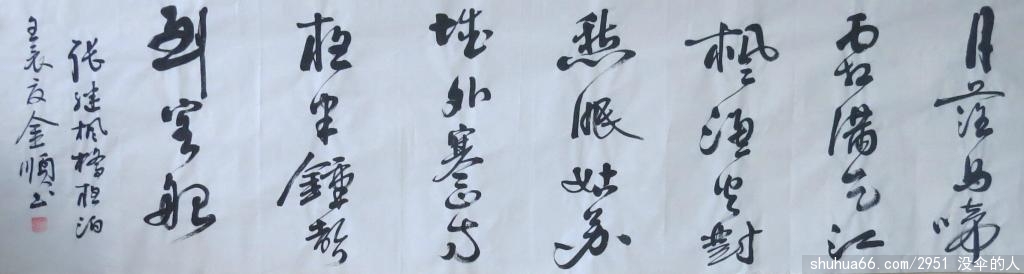 月落乌啼
霜满天江
枫渔火對
愁眠姑苏
城外寒山寺
夜半鐘聲
到客船
张继枫橋夜泊
壬辰夏金順书
shuhua66.com/2951 没伞的人